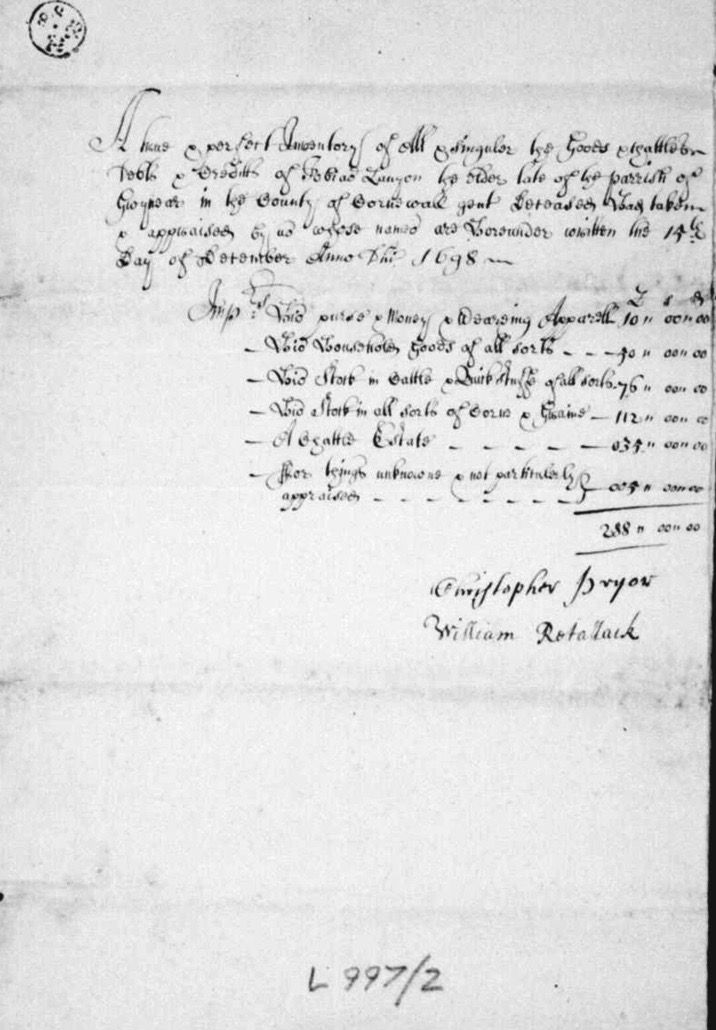 A true & perfect Inventory of All & singuler the Goods & Chattles
Debts & Creditts of Tobias Lanyon the elder late of the parrish of
Gwynear in the County of Cornewall gent Deceased Had taken
& appraised by us whose names are hereunder written the 14th
Day of December Anno Dni 1698
£ s d
Imp:rs His purse & Money & Weareing Apparell 10 " 00 " 00
– His Household Goods of all sorts – – – 50 " 00 " 00
– His Stock in Cattle & Quick stuffe of all sorts – 76 " 00 " 00
– His Stock in all sorts of Corne & Graine – 112 " 00 " 00
– A Chattle Estate – – – – – 035 " 00 " 00
– For things unknowne & not particulerly
appraised – – – – – – – 005 " 00 " 00
288 " 00 " 00
Christopher Pryor
William Retallack
L 997/2